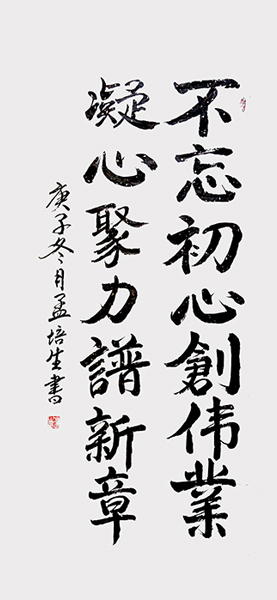 不忘初心創伟業
凝心聚力譜新章
庚子冬月孟培生書